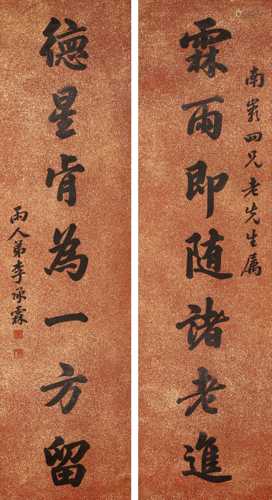 南崧四兄老先生属
霖雨即随诸老進
德星肯為一方留
雨人弟李承霖